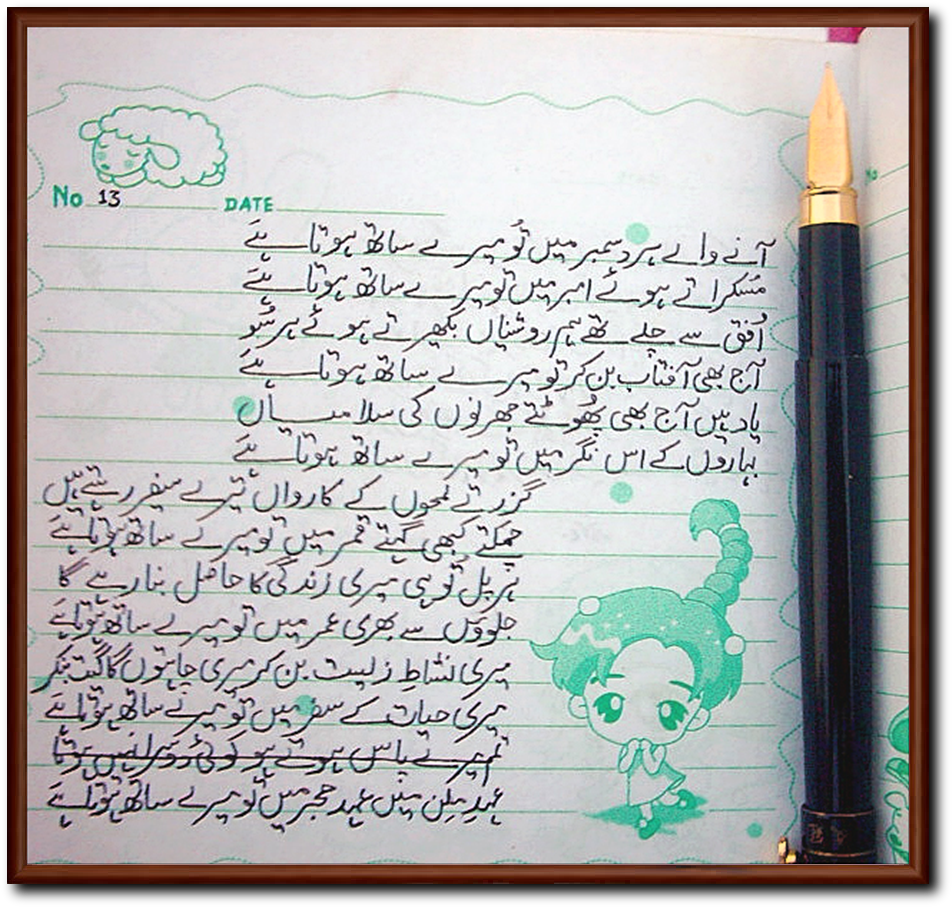 No 13 DATE
آنے والے ہر دسمبر میں تُو میرے ساتھ ہوتا ہے
مُسکراتے ہوئے امبر میں تو میرے ساتھ ہوتا ہے
اُفق سے چلے تھے ہم روشنیاں بکھیرتے ہوئے ہر سُو
آج بھی آفتاب بن کر تو میرے ساتھ ہوتا ہے
یاد ہیں آج بھی پھُوٹتے جھرنوں کی سلامیاں
بہاروں کے اس نگر میں تو میرے ساتھ ہوتا ہے
گزرتے لمحوں کے کارواں تیرے سفیر رہتے ہیں
چمکتے کبھی گہنتے قمر میں تو میرے ساتھ ہوتا ہے
ہر پل تو ہی میری زندگی کا حاصل بنا رہے گا
جلووں سے بھری عمر میں تو میرے ساتھ ہوتا ہے
میری نشاطِ زیست بن کر میری چاہتوں کا گیت بنکر
میری حیات کے سفر میں تو میرے ساتھ ہوتا ہے
تم میرے پاس ہوتے ہو کوئی دوسرا نہیں ہوتا
عہدِ ملن میں عہد ہجر میں تو میرے ساتھ ہوتا ہے